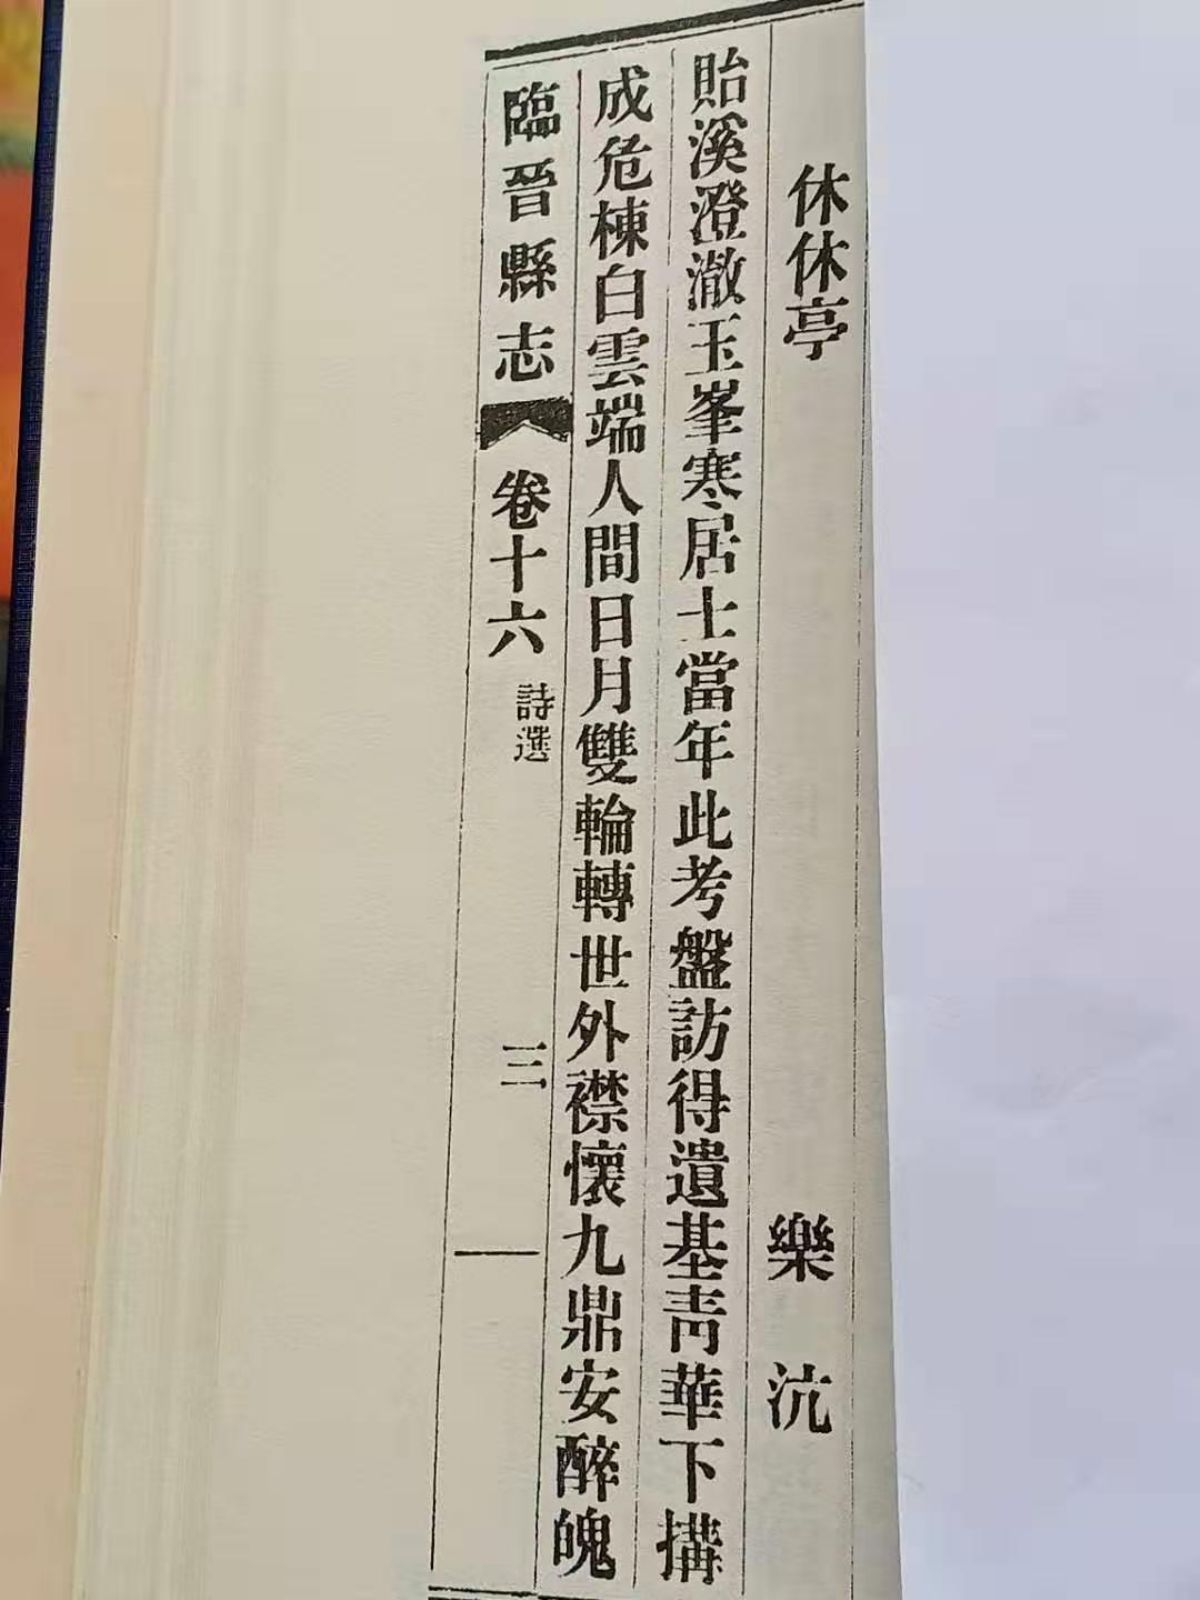 休休亭 樂沆
貽溪澄澈玉峯寒居士當年此考盤訪得遺基靑華下搆
成危棟白雲端人間日月雙輪轉世外襟懷九鼎安醉魄
臨晉縣志 卷十六 詩選 三